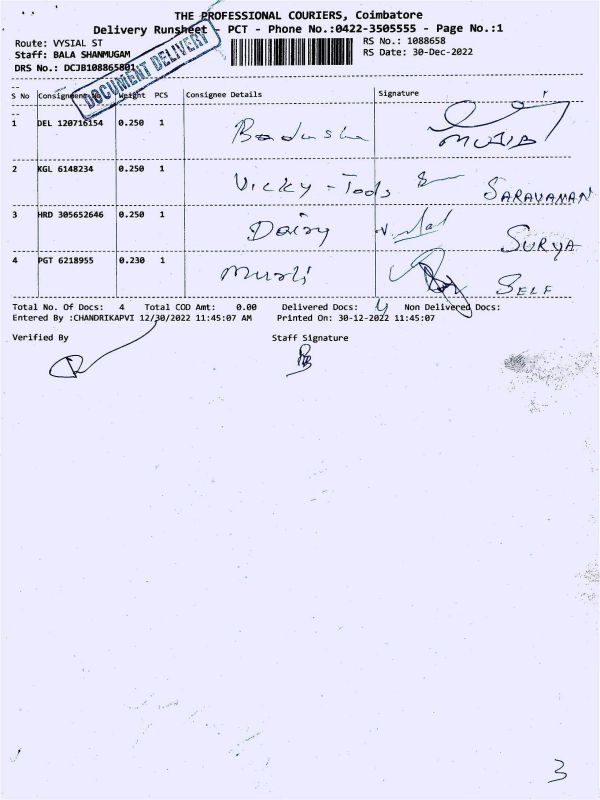 THE PROFESSIONAL COURIERS, Coimbatore
Delivery Runsheet - PCT - Phone No.:0422-3505555 - Page No.:1
Route: VYSIAL ST
RS No.: 1088658
Staff: BALA SHANMUGAM
RS Date: 30-Dec-2022
DRS No.: DCJB108865801
DOCUMENT DELIVERY
S No Consignment No Weight PCS Consignee Details Signature
1 DEL 120716154 0.250 1 Badusha MUJIB
2 KGL 6148234 0.250 1 Vicky - Tods SARAVANAN
3 HRD 305652646 0.250 1 Dairy SURYA
4 PGT 6218955 0.230 1 Murli SELF
Total No. Of Docs: 4 Total COD Amt: 0.00 Delivered Docs: 4 Non Delivered Docs:
Entered By :CHANDRIKAPVI 12/30/2022 11:45:07 AM Printed On: 30-12-2022 11:45:07
Verified By Staff Signature
3